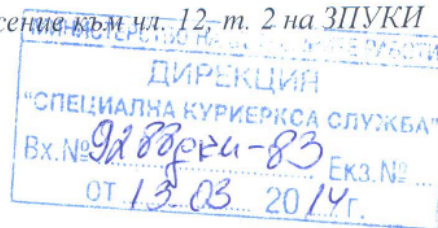 сение към чл. 12, т. 2 на ЗПУКИ
МИНИСТЕРСТВО НА ВЪТРЕШНИТЕ РАБОТИ
ДИРЕКЦИЯ
"СПЕЦИАЛНА КУРИЕРКСА СЛУЖБА"
Вх.№ 9288рки-83 Екз.№
ОТ 13.03 2014г.